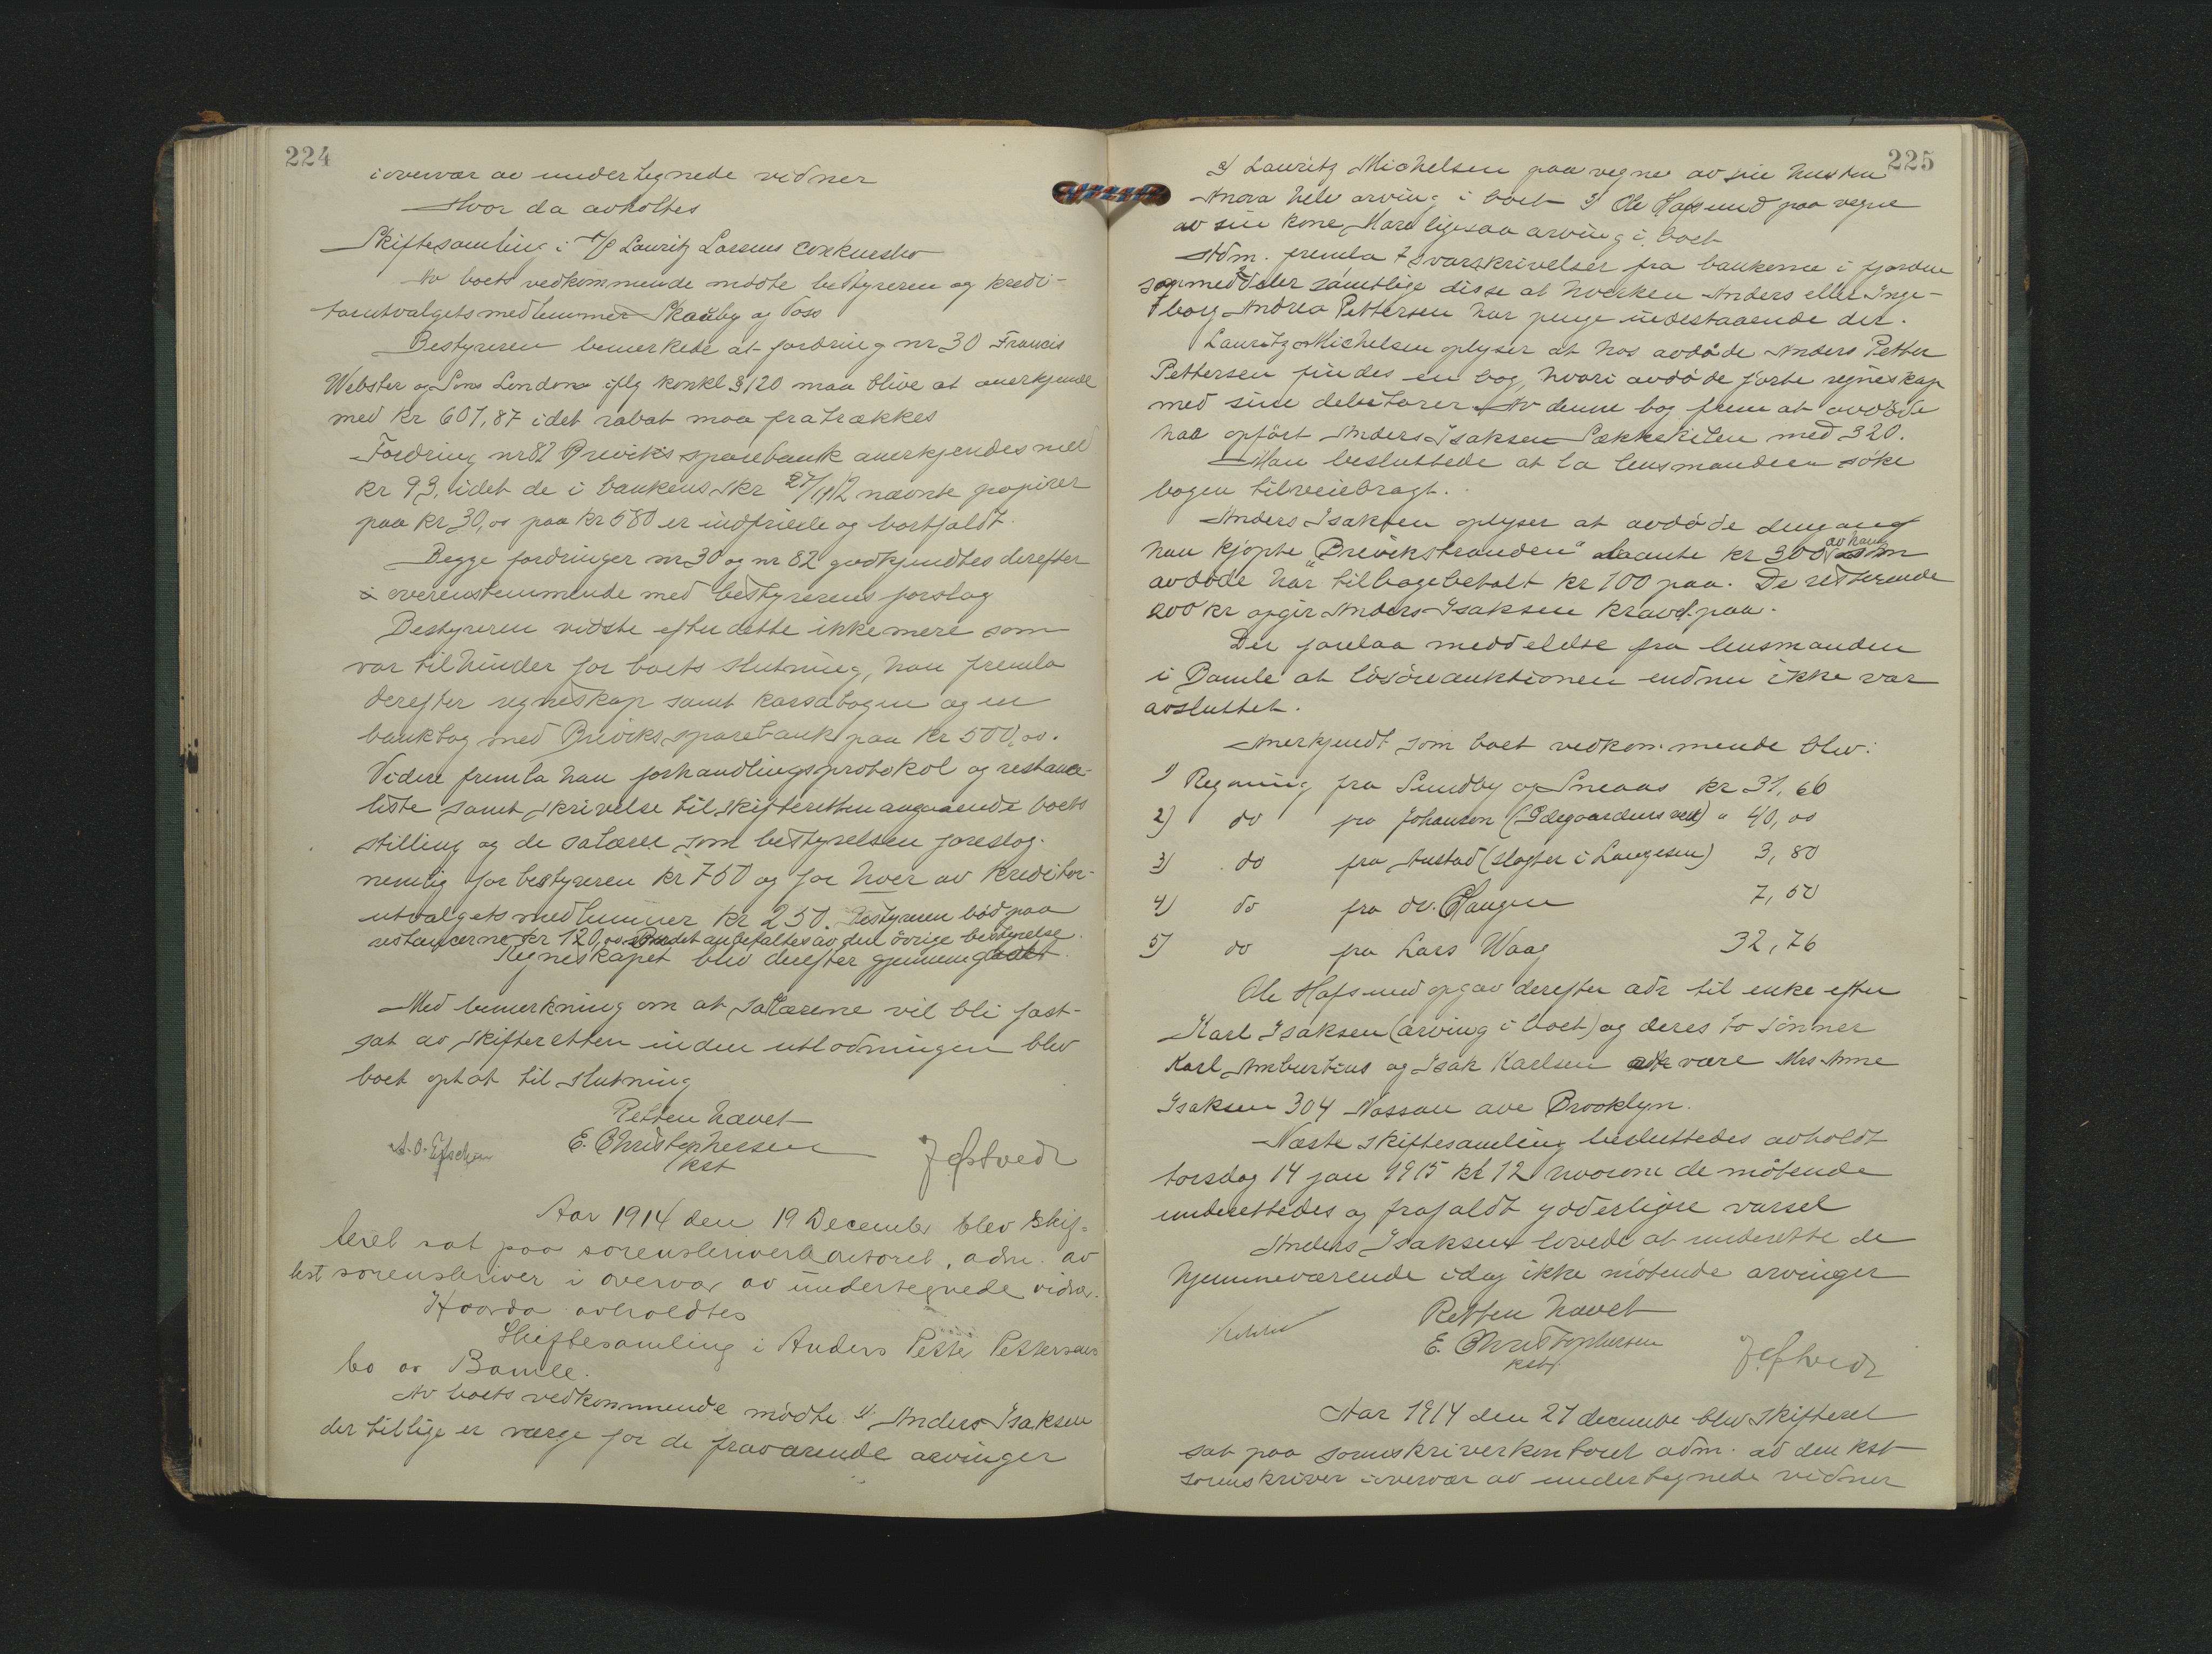 224
i overvær av undertegnede vidner
Hvor da avholtes
Skiftesamling i A/S Lauritz Larsens conkursbo
Av boets vedkommende mødte bestyreren og kredi-
torutvalgets medlemmer Skauby og Foss
Bestyreren bemerkede at fordring nr 30 Francis
Webster og Sons London iflg konkl § 120 maa blive at anerkjende
med kr 601,87 idet rabat maa fratrækkes
Fordring nr 82 Breviks sparebank anerkjendes med
kr 93, idet de i bankens skr 27/1 12 nævnte papirer
paa kr 30,00 paa kr 580 er indfriede og bortfaldt.
Begge fordringer nr 30 og nr 82 godkjendtes derefter
i overenstemmende med bestyrerens forslag
Bestyreren vidste efter dette ikke mere som
var til hinder for boets slutning, han fremla
derefter regneskap samt kassabogen og en
bankbog med Breviks sparebank paa kr 500,00.
Videre fremla han forhandlingsprotokol og restance-
liste samt skrivelse til skifteretten angaaende boets
stilling og de salærer som bestyrelsen foreslog.
nemlig for bestyreren kr 750 og for hver av kreditor-
utvalgets medlemmer kr 250. Bestyreren bød paa
restancerne kr 120,00 Budet anbefaltes av den övrige bestyrelse.
Regneskapet blev derefter gjennemgaat.
Med bemerkning om at salærerne vil bli fast-
sat av skifteretten inden utlodningen blev
boet optat til slutning
Retten hævet
E. Christophersen
kst
J Østvedt
Aar 1914 den 19 December blev skif-
teret sat paa sorenskriverkontoret, adm. av
kst sorenskriver i overvær av undertegnede vidner.
Hvorda avholdtes
Skiftesamling i Anders Petter Pettersens
bo av Bamle.
Av boets vedkommende mødte 1) Anders Isaksen
der tillige er værge for de fraværende arvinger
225
2) Lauritz Michelsen paa vegne av sin hustru
arving i boet 3) Ole Hafsund paa vegne
av sin kone Maren ligesaa arving i boet
Adm. fremla 7 svarskrivelser fra bankerne i fjorden
og meddeler samtlige disse at hverken Anders eller Inge-
borg Andrea Pettersen har penge indestaaende der.
Lauritz Michelsen oplyser at hos avdøde Anders Petter
Pettersen findes en bog, hvori avdøde førte regneskap
med sine debitorer. Av denne bog frem at avdøde
har opført Anders Isaksen Sækkekilen med 320.
Man besluttede at la lensmanden søke
bogen tilveiebragt.
Anders Isaksen oplyser at avdøde dengang
han kjøpte "Brevikstranden" laante kr 300 av ham som
avdøde har tilbagebetalt kr 100 paa. De resterende
200 kr opgir Anders Isaksen kravet paa.
Der forelaa meddelelse fra lensmanden
i Bamle at løsøreauktionen endnu ikke var
avsluttet.
Anerkjendt som boet vedkommende blev:
1) Regning fra Sundby og Sneaas kr 31,66
2) do fra Johansen (Ødegaardens verk) " 40,00
3) do fra Austad (slagter i Langesun) 3,80
4) do fra dr. Haugen 7,50
5) do fra Lars Waag 32,76
Ole Hafsund opgav derefter adr til enke efter
Karl Isaksen (arving i boet) og deres to sønner
Karl Amburtius og Isak Karlsen at være Mrs Anne
Isaksen 304 Nassau ave Brooklyn.
Næste skiftesamling besluttedes avholdt
torsdag 14 jan 1915 kl 12 hvorom de møtende
underettedes og frafaldt yderligere varsel
Anders Isaksen lovede at underette de
hjemmeværende idag ikke møtende arvinger
Retten hævet
E. Christophersen
kst
J. Østvedt
Aar 1914 den 21 december blev skifteret
sat paa sorenskriverkontoret adm. av den kst
sorenskriver i overvær av undertegnede vidner